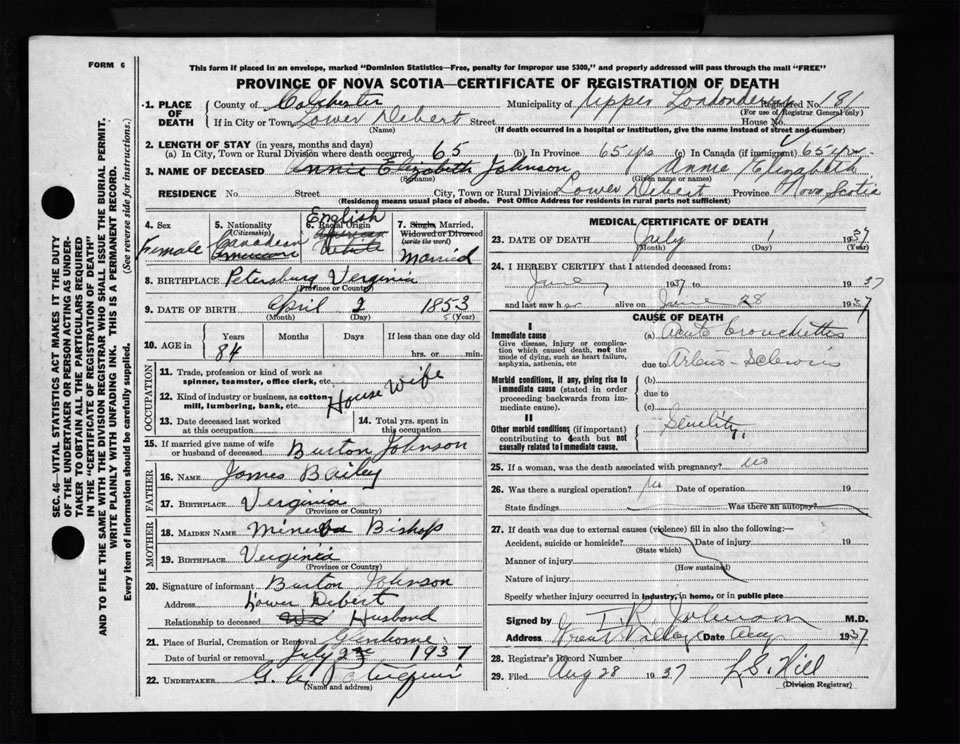 FORM 6
This form if placed in an envelope, marked "Dominion Statistics—Free, penalty for improper use $300," and properly addressed will pass through the mail "FREE"
PROVINCE OF NOVA SCOTIA—CERTIFICATE OF REGISTRATION OF DEATH
1. PLACE OF DEATH County of Colchester Municipality of Upper Londonderry Registered No. 181
(For use of Registrar General only)
If in City or Town Lower Debert Street House No.
(Name) (If death occurred in a hospital or institution, give the name instead of street and number)
2. LENGTH OF STAY (in years, months and days)
(a) In City, Town or Rural Division where death occurred 65 (b) In Province 65 yrs (c) In Canada (if immigrant) 65 yrs.
3. NAME OF DECEASED Annie Elizabeth Johnson Annie Elizabeth
(Surname) (Given name or names)
RESIDENCE No. Street City, Town or Rural Division Lower Debert Province Nova Scotia
(Residence means usual place of abode. Post Office Address for residents in rural parts not sufficient)
4. Sex Female
5. Nationality (Citizenship) Canadian American
6. Racial Origin English White
7. Single, Married, Widowed or Divorced (write the word) Married
8. BIRTHPLACE Petersburg Verginia
(Province or Country)
9. DATE OF BIRTH April 2 1853
(Month) (Day) (Year)
10. AGE in Years Months Days If less than one day
84 hrs. or min.
OCCUPATION
11. Trade, profession or kind of work as spinner, teamster, office clerk, etc.
12. Kind of industry or business, as cotton mill, lumbering, bank, etc.
House Wife
13. Date deceased last worked at this occupation
14. Total yrs. spent in this occupation
15. If married give name of wife or husband of deceased Burton Johnson
FATHER
16. NAME James Bailey
17. BIRTHPLACE Verginia
(Province or Country)
MOTHER
18. MAIDEN NAME Bishop
19. BIRTHPLACE Verginia
(Province or Country)
20. Signature of informant Burton Johnson
Address Lower Debert
Relationship to deceased Husband
21. Place of Burial, Cremation or Removal Glenholme
Date of burial or removal July 2nd 1937
22. UNDERTAKER G.
(Name and address)
MEDICAL CERTIFICATE OF DEATH
23. DATE OF DEATH July 1 1937
(Month) (Day) (Year)
24. I HEREBY CERTIFY that I attended deceased from:
June 1937 to 1937
and last saw her alive on June 28 1937
CAUSE OF DEATH
I
Immediate cause
Give disease, injury or complication which caused death, not the mode of dying, such as heart failure, asphyxia, asthenia, etc
(a) Acute Bronchitis
due to Arterio-Sclerosis
Morbid conditions, if any, giving rise to immediate cause (stated in order proceeding backwards from immediate cause).
(b)
due to
(c)
II
Other morbid conditions (if important) contributing to death but not causally related to immediate cause.
Senility.
25. If a woman, was the death associated with pregnancy? no
26. Was there a surgical operation? no Date of operation 19
State findings Was there an autopsy?
27. If death was due to external causes (violence) fill in also the following:—
Accident, suicide or homicide? Date of injury 19
(State which)
Manner of injury
(How sustained)
Nature of injury
Specify whether injury occurred in industry, in home, or in public place
Signed by T.R. Johnson M.D.
Address Great Village Date Aug 1937
28. Registrar's Record Number
29. Filed Aug 28 1937 L.S. Hill
(Division Registrar)
SEC. 46—VITAL STATISTICS ACT MAKES IT THE DUTY
OF THE UNDERTAKER OR PERSON ACTING AS UNDER-
TAKER TO OBTAIN ALL THE PARTICULARS REQUIRED
IN THE "CERTIFICATE OF REGISTRATION OF DEATH"
AND TO FILE THE SAME WITH THE DIVISION REGISTRAR WHO SHALL ISSUE THE BURIAL PERMIT.
WRITE PLAINLY WITH UNFADING INK. THIS IS A PERMANENT RECORD.
Every item of information should be carefully supplied. (See reverse side for instructions.)